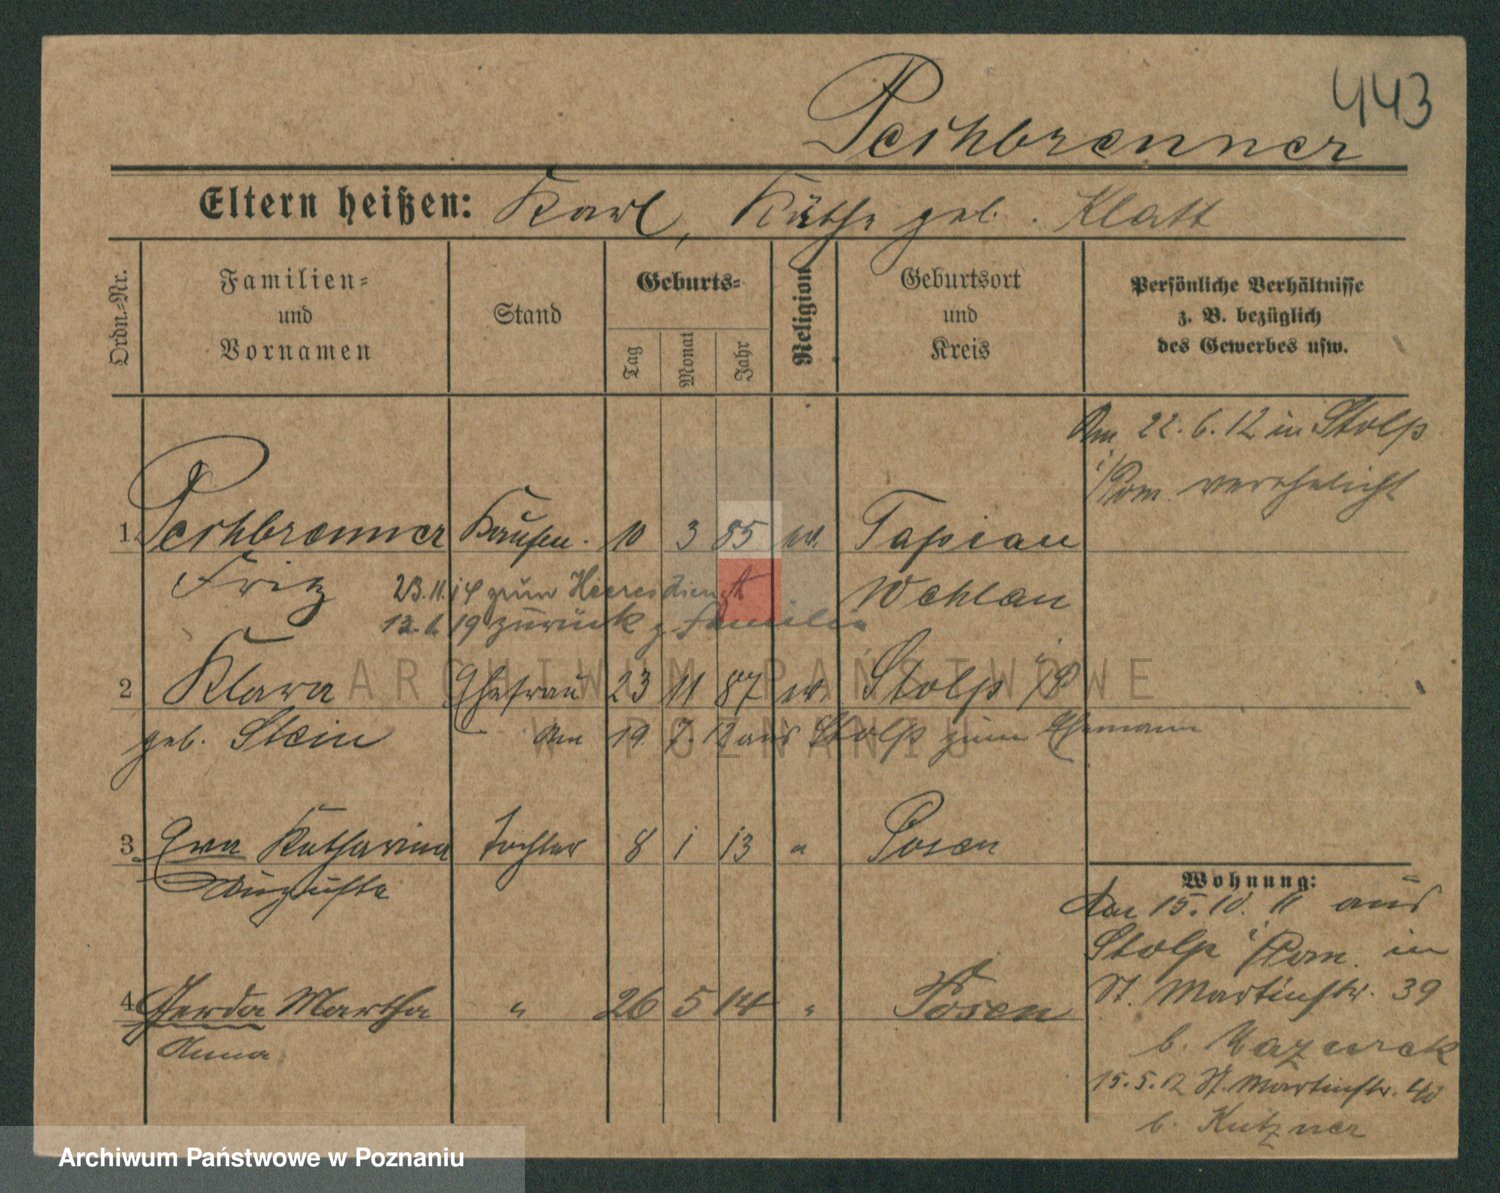 443
Pechbrenner
Eltern heißen: Karl, Käthe geb. Klatt
Ordn.-Nr.
Familien-
und
Vornamen
Stand
Geburts-
Tag
Monat
Jahr
Religion
Geburtsort
und
Kreis
Persönliche Verhältnisse
z. B. bezüglich
des Gewerbes usw.
Am 22.6.12 in Stolp
i/Pom. verehelicht
1. Pechbrenner Kaufm. 10 3 85 ev. Tapiau
Fritz Wehlau
23.11.14 zum Heeresdienst
19 zurück z. Familie
ARCHIWUM PAŃSTWOWE
W POZNANIU
2 Klara Ehefrau 23 11 87 ev. Stolp i/P
geb. Stein Am 19.7.12 aus Stolp zum Ehemann
3 Eva Katharina Tochter 8 1 13 " Posen
Auguste
4 Gerda Martha " 26 5 14 " Posen
Anna
Wohnung:
Am 15.10.11 aus
Stolp i/Pom. in
St. Martinstr. 39
b. Kazurek
15.5.12 St. Martinstr. 40
b. Kutzner
Archiwum Państwowe w Poznaniu